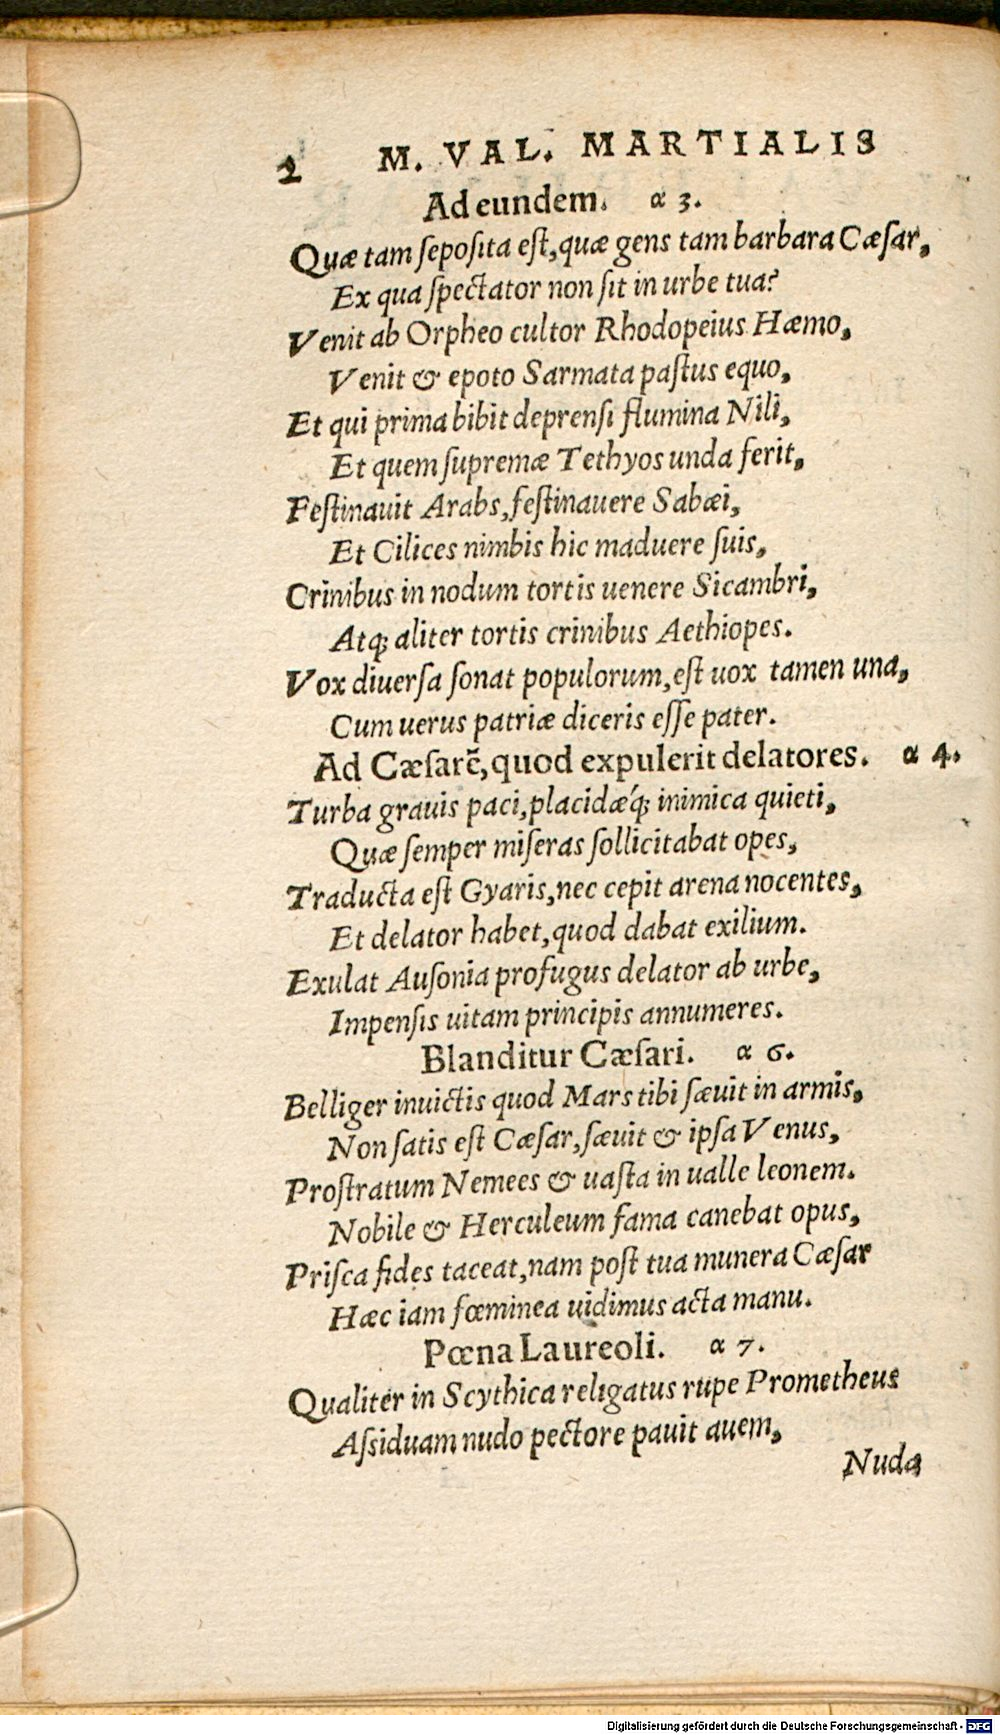 2 M. VAL. MARTIALIS
Ad eundem. α 3.
Quæ tam ſepoſita eſt, quæ gens tam barbara Cæſar,
Ex qua ſpectator non ſit in urbe tua?
Venit ab Orpheo cultor Rhodopeius Hæmo,
Venit & epoto Sarmata paſtus equo,
Et qui prima bibit deprenſi flumina Nili,
Et quem ſupremæ Tethyos unda ferit,
Feſtinauit Arabs, feſtinauere Sabæi,
Et Cilices nimbis hic maduere ſuis,
Crinibus in nodum tortis uenere Sicambri,
Atq; aliter tortis crinibus Aethiopes.
Vox diuerſa ſonat populorum, eſt uox tamen una,
Cum uerus patriæ diceris eſſe pater.
Ad Cæſarē, quod expulerit delatores. α 4.
Turba grauis paci, placidǽq; inimica quieti,
Quæ ſemper miſeras ſollicitabat opes,
Traducta eſt Gyaris, nec cepit arena nocentes,
Et delator habet, quod dabat exilium.
Exulat Auſonia profugus delator ab urbe,
Impenſis uitam principis annumeres.
Blanditur Cæſari. α 6.
Belliger inuictis quod Mars tibi ſæuit in armis,
Non ſatis eſt Cæſar, ſæuit & ipſa Venus,
Proſtratum Nemees & uaſta in ualle leonem.
Nobile & Herculeum fama canebat opus,
Priſca fides taceat, nam poſt tua munera Cæſar
Hæc iam fœminea uidimus acta manu.
Pœna Laureoli. α 7.
Qualiter in Scythica religatus rupe Prometheus
Aſsiduam nudo pectore pauit auem,
Nuda
Digitalisierung gefördert durch die Deutsche Forschungsgemeinschaft - DFG